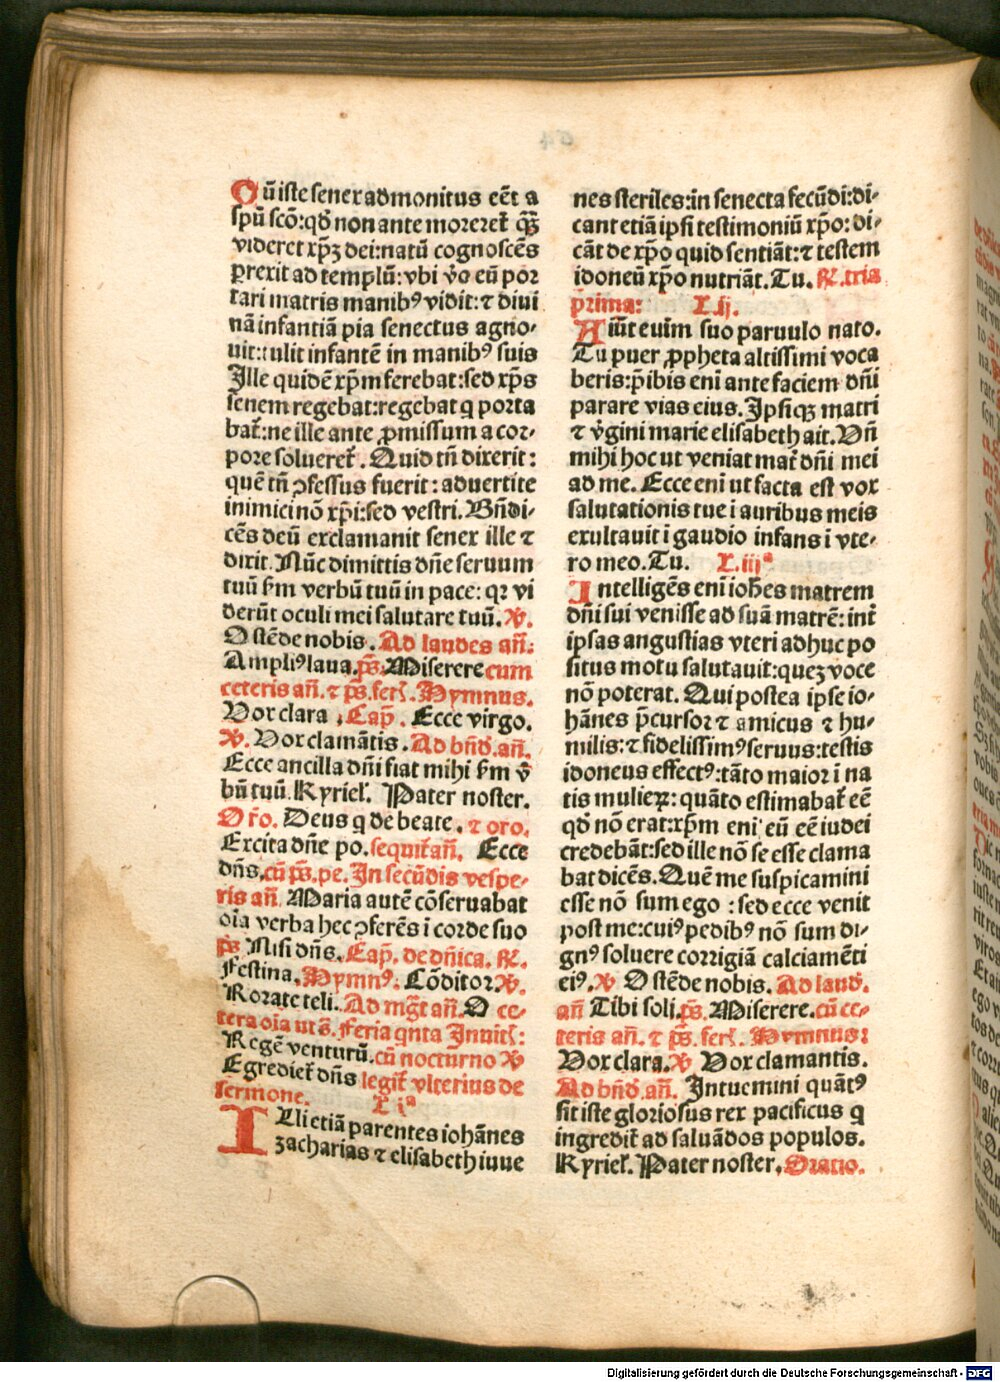 Cū iste senex admonitus eēt a
spū scō: qđ non ante moreret̃ qȝ̃
videret xp̄ȝ dei: natū cognoscēs
ꝑrexit ad templū: vbi v̉o eū por
tari matris manibꝰ vidit: ⁊ diui
nā infantiā pia senectus agno⸗
uit: tulit infantē in manibꝰ suis
Ille quidē xp̄m ferebat: sed xp̄s
senem regebat: regebat q porta
bat̃: ne ille ante ꝓmissum a cor⸗
pore solueret̃. Quid tn̄ dixerit:
quē tn̄ ꝯfessus fuerit: aduertite
inimici nō xp̄i: sed vestri. Bn̄di⸗
cēs deū exclamanit senex ille ⁊
dixit. Nūc dimittis dn̄e seruum
tuū ẜm verbū tuū in pace: qꝛ vi
derūt oculi mei salutare tuū. ℣.
Ostēde nobis. Ad laudes an̄:
Ampliꝰ laua. ps̄. Miserere cum
ceteris an̄. ⁊ ps̄. ferl̃. Hymnus.
Vox clara. Cap̄. Ecce virgo.
℣. Vox clamātis. Ad bn̄d. an̄.
Ecce ancilla dn̄i fiat mihi ẜm v̉
bū tuū. Kyriel̃. Pater noster.
Or̄o. Deus q de beate. ⁊ oro.
Excita dn̄e po. sequit̃ an̄. Ecce
dn̄s. cū ps̄. pe. In secūdis vespe⸗
ris an̄ Maria autē cōseruabat
oīa verba hec ꝯferēs i corde suo
ps̄ Nisi dn̄s. Cap̄. de dn̄ica. ℟.
Festina. Hymnꝰ. Cōditor ℣.
Rorate celi. Ad mḡt an̄. O ce⸗
tera oīa ut s̄. Feria qnta Inuit̃:
Regē venturū. cū nocturno ℣
Egrediet̃ dn̄s legit̃ vlterius de
sermone. L. iᵃ
Illi etiā parentes iohānes
zacharias ⁊ elisabeth iuue
nes steriles: in senecta fecūdi: di⸗
cant etiā ipsi testimoniū xp̄o: di⸗
cāt de xp̄o quid sentiāt: ⁊ testem
idoneū xp̄o nutriāt. Tu. ℟. tria
prima: L. ij.
Aiūt euim suo paruulo nato.
Tu puer ꝓpheta altissimi voca
beris: p̄ibis eni ante faciem dn̄i
parare vias eius. Ipsiqȝ matri
⁊ v̉gini marie elisabeth ait. Vn̄
mihi hoc ut veniat mat̃ dn̄i mei
ad me. Ecce eni ut facta est vox
salutationis tue i auribus meis
exultauit i gaudio infans i vte⸗
ro meo. Tu. L. iijᵃ
Intelligēs eni ioh̄es matrem
dn̄i sui venisse ad suā matrē: int̃
ipsas angustias vteri adhuc po
situs motu salutauit: quez voce
nō poterat. Qui postea ipse io⸗
hānes p̄cursor ⁊ amicus ⁊ hu⸗
milis: ⁊ fidelissimꝰ seruus: testis
idoneus effectꝰ: tāto maior i na
tis mulieꝝ: quāto estimabat̃ eē
qđ nō erat: xp̄m eni eū eē iudei
credebāt: sed ille nō se esse clama
bat dicēs. Quē me suspicamini
esse nō sum ego: sed ecce venit
post me: cuiꝰ pedibꝰ nō sum di⸗
gnꝰ soluere corrigiā calciamēti
eiꝰ. ℣ Ostēde nobis. Ad laud.
an̄ Tibi soli. ps̄. Miserere. cū ce⸗
teris an̄. ⁊ ps̄. ferl̃. Hymnus:
Vox clara. ℣ Vox clamantis.
Ad bn̄d. an̄. Intuemini quātꝰ
sit iste gloriosus rex pacificus q
ingredit̃ ad saluādos populos.
Kyriel̃. Pater noster, Oratio.
Digitalisierung gefördert durch die Deutsche Forschungsgemeinschaft - DFG